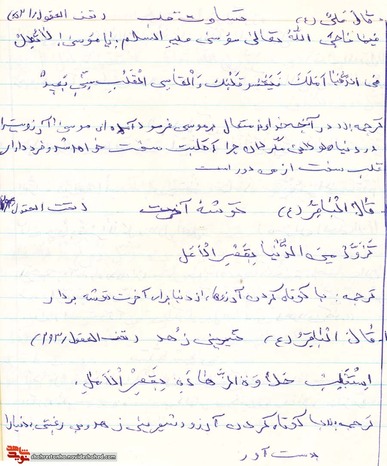 - قال علیّ (ع) قساوت قلب (تحف العقول/
فیما ناجی اللهُ تعالی موسی علیه السلام: یا موسی، لاتطل
فی الدنیا أملک فیقسو قلبک والقاسی القلب منّی بعیدٌ
ترجمه:
در دنیا طولانی مگردان چرا که قلبت سخت خواهد شد و فرد دارای
قلب سخت از من دور است
- قال الباقر (ع) توشه آخرت (تحف العقول
تزوّد من الدّنیا بقصر الأمل
ترجمه: با کوتاه کردن آرزو، از دنیا برای آخرت توشه بردار
- قال الباقر (ع) شیرینی زهد (تحف العقول/
استجلب حلاوة الزّهادة بقصر الأمل.
ترجمه: با کوتاه کردن آرزو، شیرینی زهد و بی رغبتی دنیا را
بدست آور